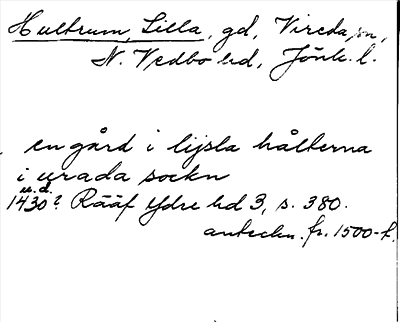 Hultrum, Lilla, gd, Vireda sn,
N. Vedbo hd, Jönk. l.
en gård i lijsla hålterna
i urada sockn
u.d.
1430? Rääf Ydre hd 3, s. 380.
anteckn. fr. 1500-t.